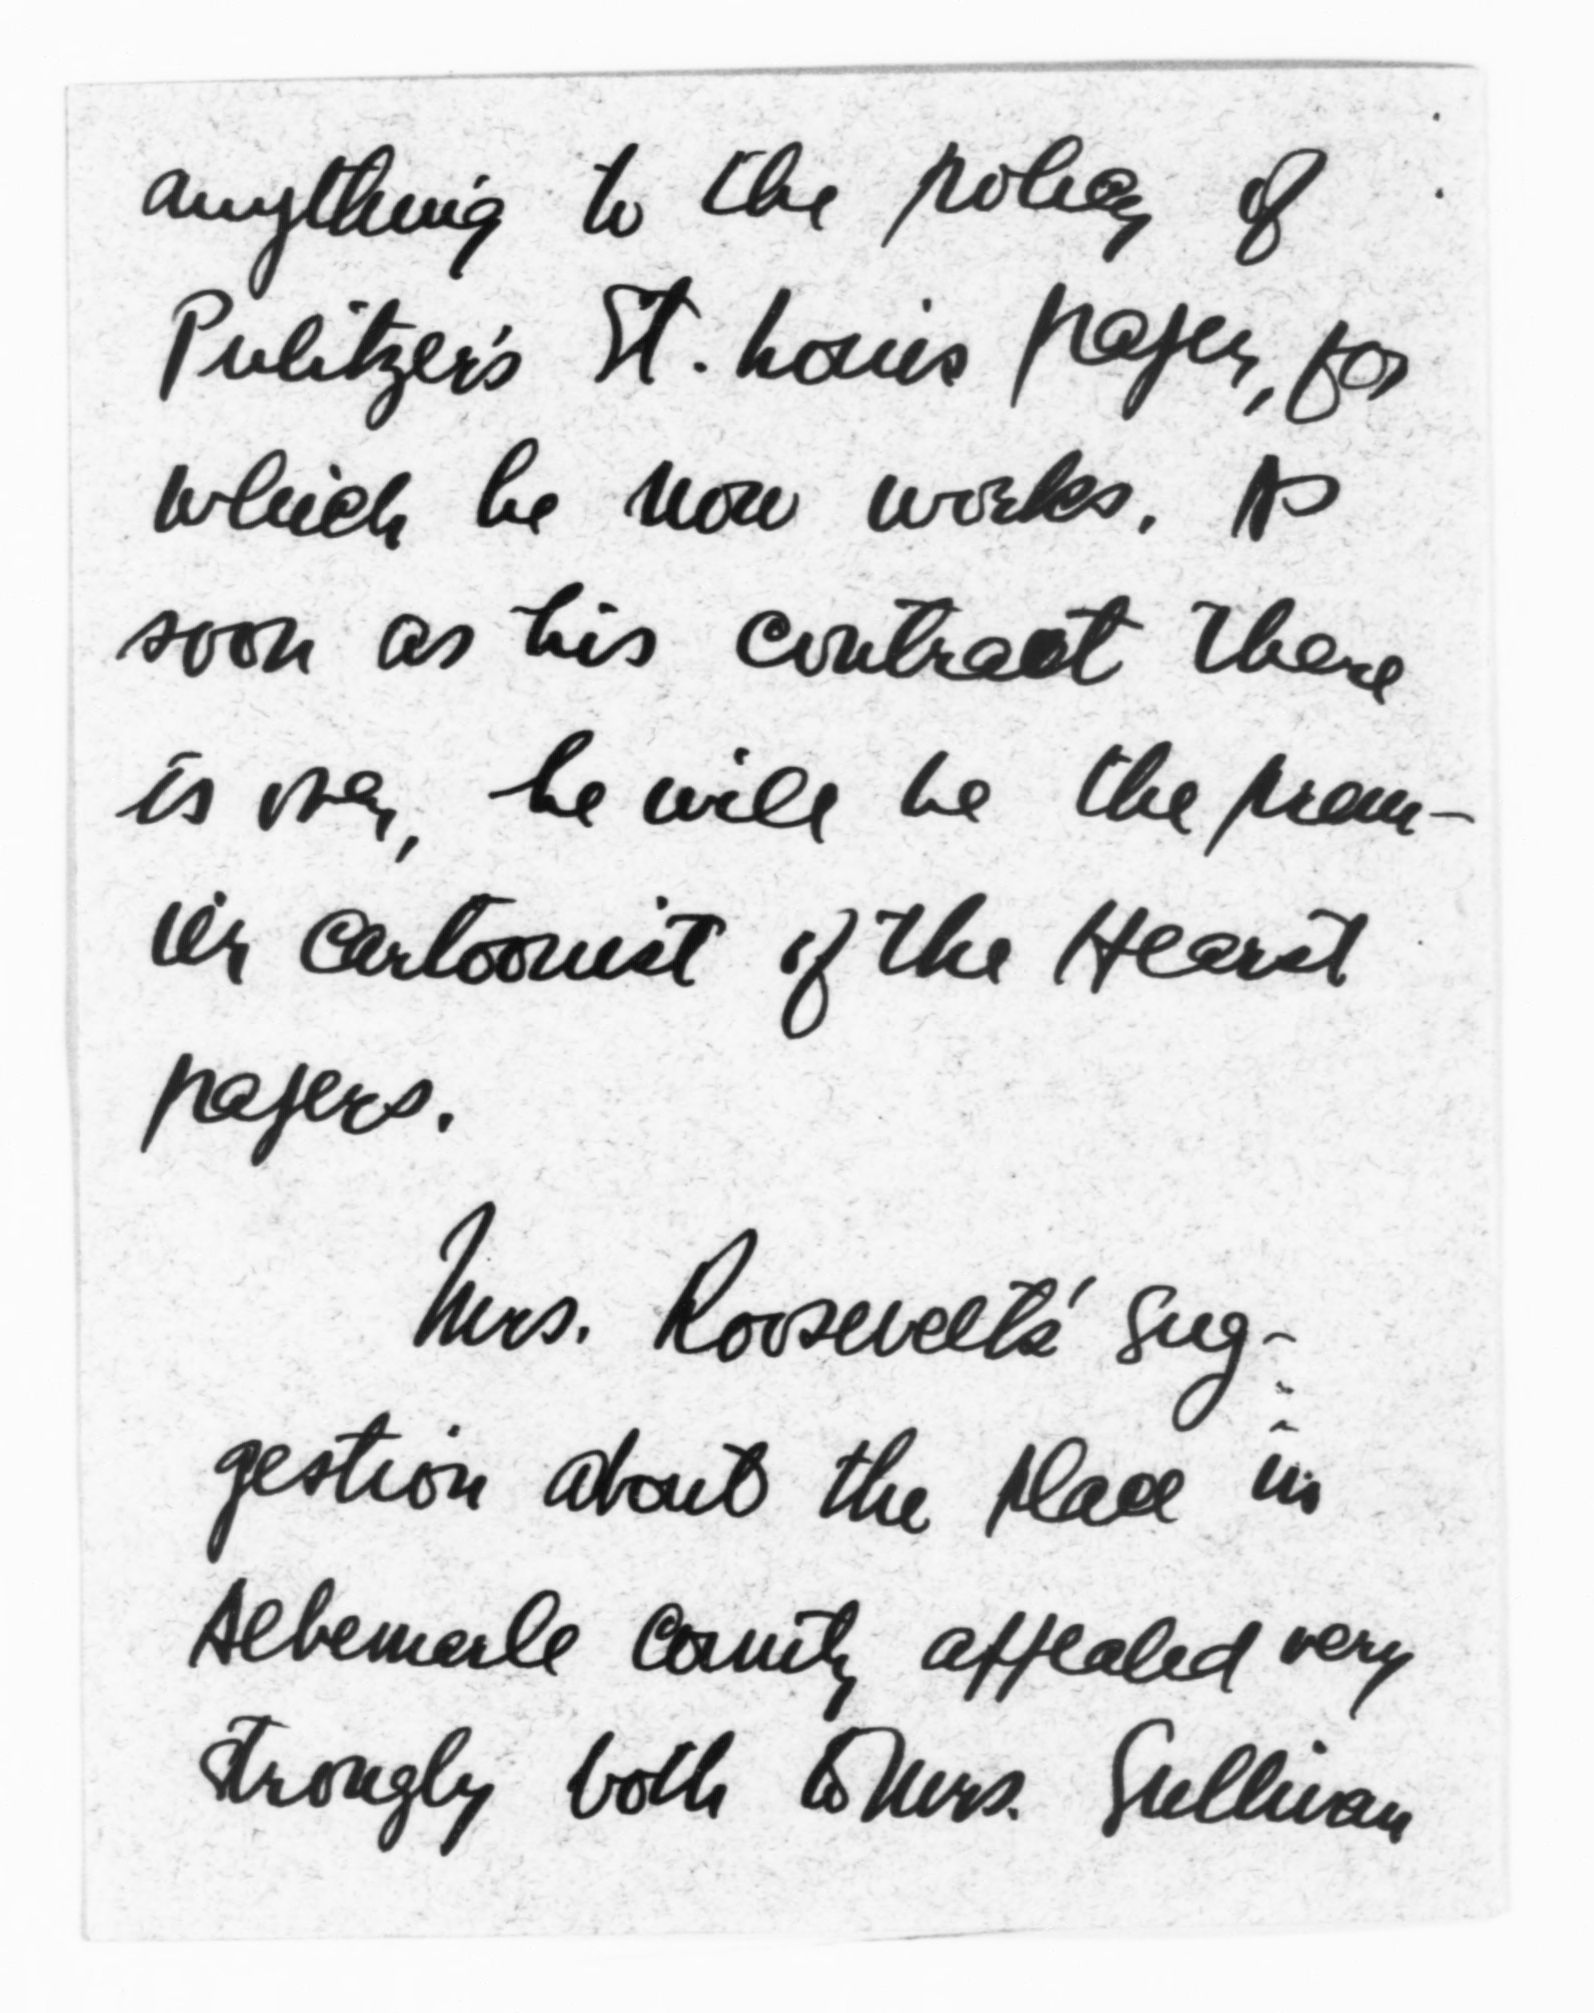 anything to the policy of
Pulitzer's St. Louis paper, for
which he now works. As
soon as his contract there
is over, he will be the prem-
ier cartoonist of the Hearst
papers.
Mrs. Roosevelts' sug-
gestion about the place in
Albemarle County appealed very
strongly both to Mrs. Sullivan